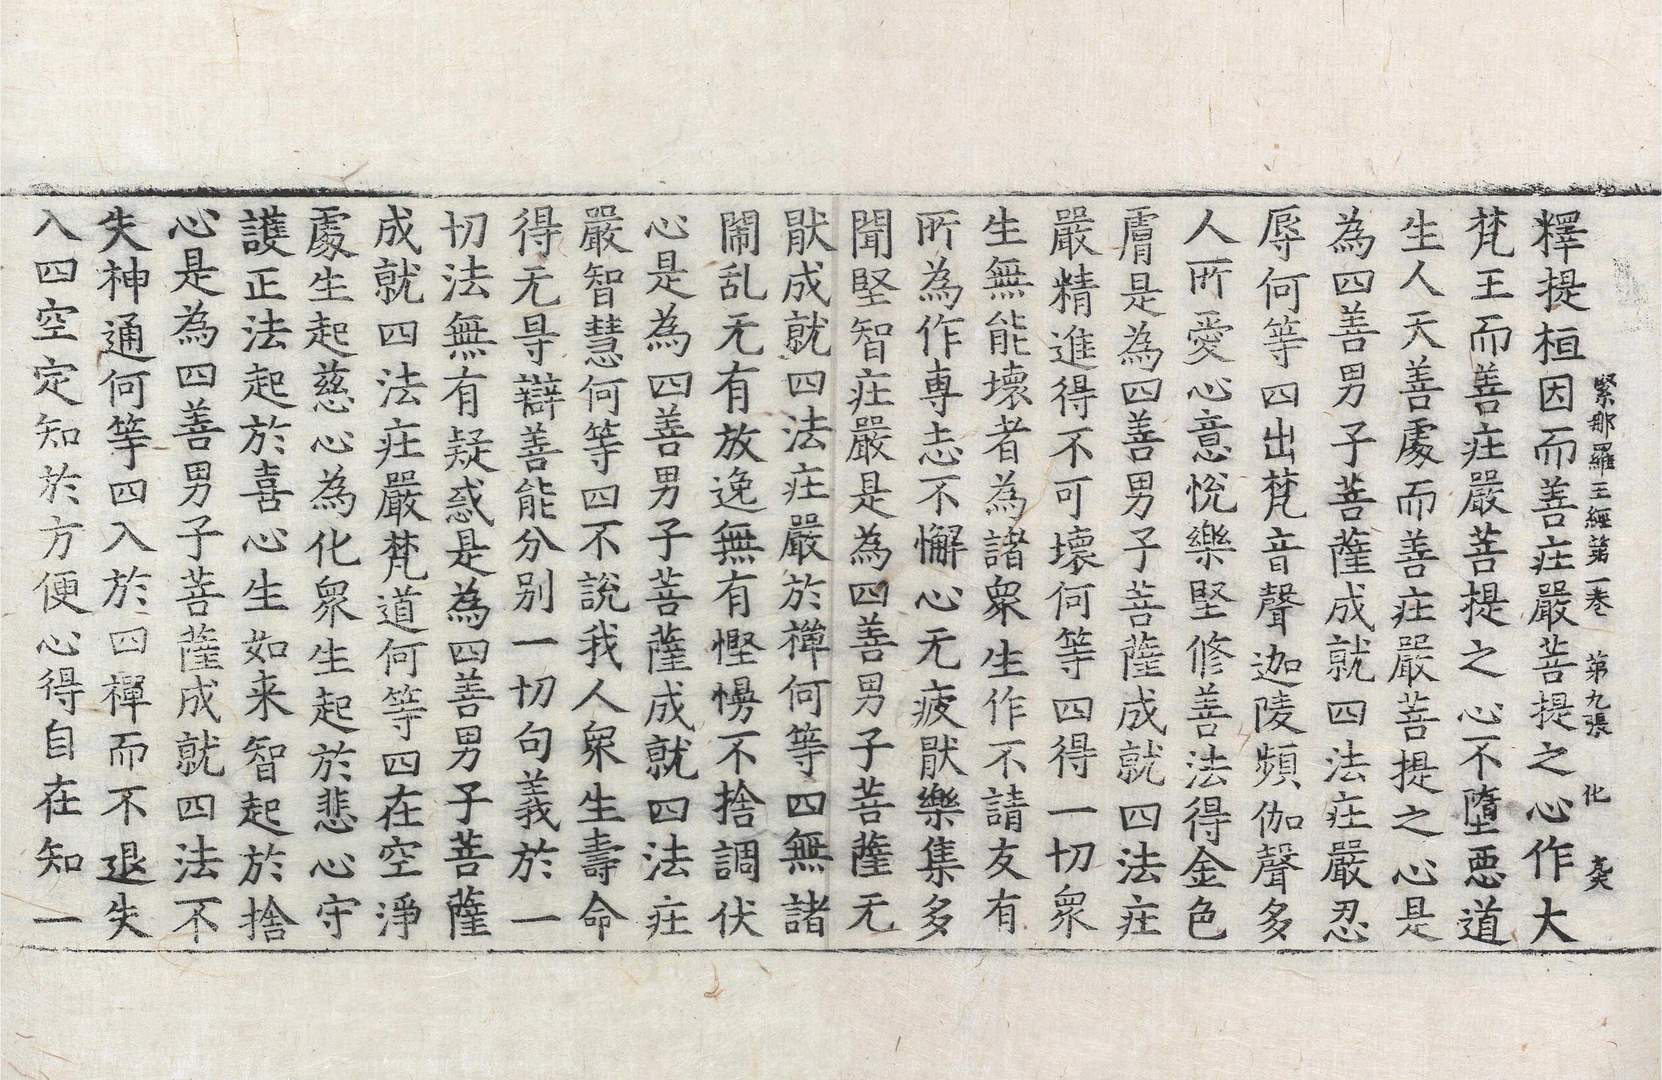 緊那羅王經第一卷 第九張 化
釋提桓因而善庄嚴菩提之心作大
梵王而善庄嚴菩提之心不墮惡道
生人天善處而善庄嚴菩提之心是
為四善男子菩薩成就四法庄嚴忍
辱何等四出梵音聲迦陵頻伽聲多
人所愛心意悅樂堅修善法得金色
膚是為四善男子菩薩成就四法庄
嚴精進得不可壞何等四得一切眾
生無能壞者為諸眾生作不請友有
所為作專志不懈心无疲猒樂集多
聞堅智庄嚴是為四善男子菩薩无
猒成就四法庄嚴於禪何等四無諸
鬧乱无有放逸無有慳慢不捨調伏
心是為四善男子菩薩成就四法庄
嚴智慧何等四不說我人眾生壽命
得无㝵辯善能分別一切句義於一
切法無有疑惑是為四善男子菩薩
成就四法庄嚴梵道何等四在空淨
處生起慈心為化眾生起於悲心守
護正法起於喜心生如来智起於捨
心是為四善男子菩薩成就四法不
失神通何等四入於四禪而不退失
入四空定知於方便心得自在知一